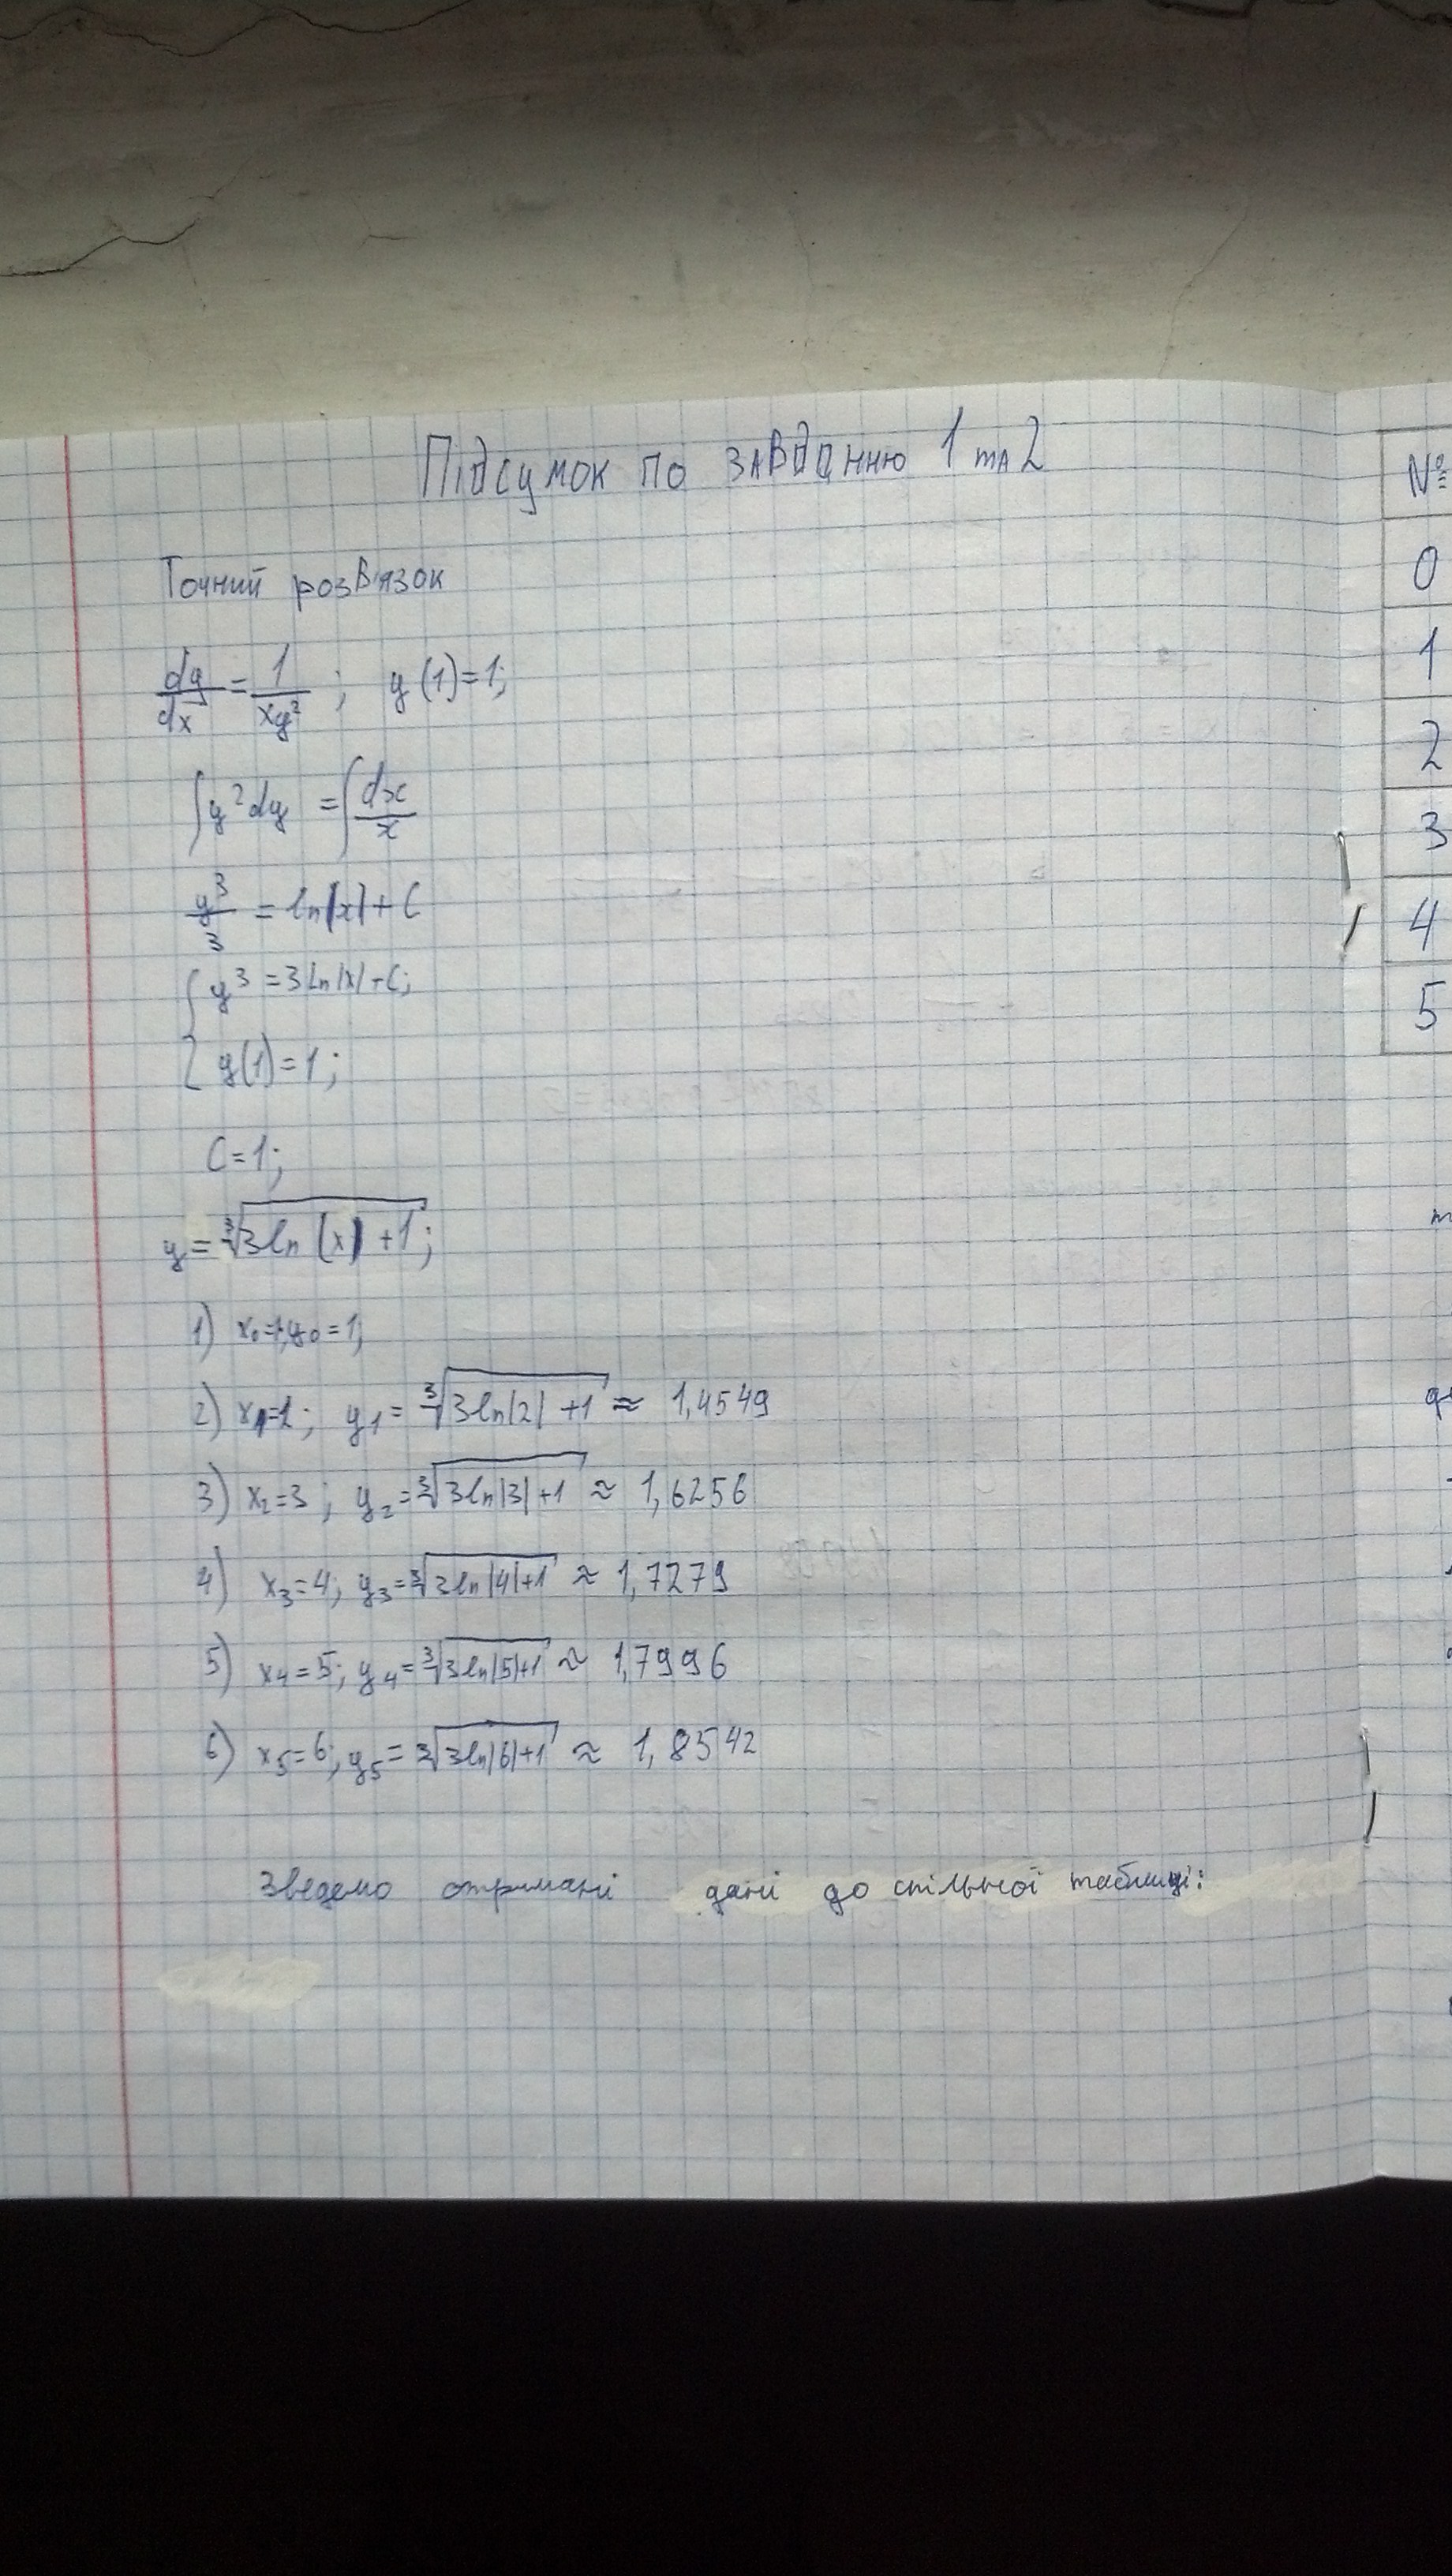 Підсумок по завданню 1 та 2
Точний розв'язок
dy/dx = 1/xy² ; y(1)=1;
∫y²dy = ∫dx/x
y³/3 = ln|x| + C
{ y³ = 3ln|x| + C;
y(1) = 1;
C = 1;
y = ∛(3ln|x| + 1);
1) x₀=1; y₀ = 1;
2) x₁=2; y₁ = ∛(3ln|2| + 1) ≈ 1,4549
3) x₂=3; y₂ = ∛(3ln|3| + 1) ≈ 1,6256
4) x₃=4; y₃ = ∛(3ln|4| + 1) ≈ 1,7279
5) x₄=5; y₄ = ∛(3ln|5| + 1) ≈ 1,7996
6) x₅=6; y₅ = ∛(3ln|6| + 1) ≈ 1,8542
Зведемо отримані дані до спільної таблиці:
№
0
1
2
3
4
5